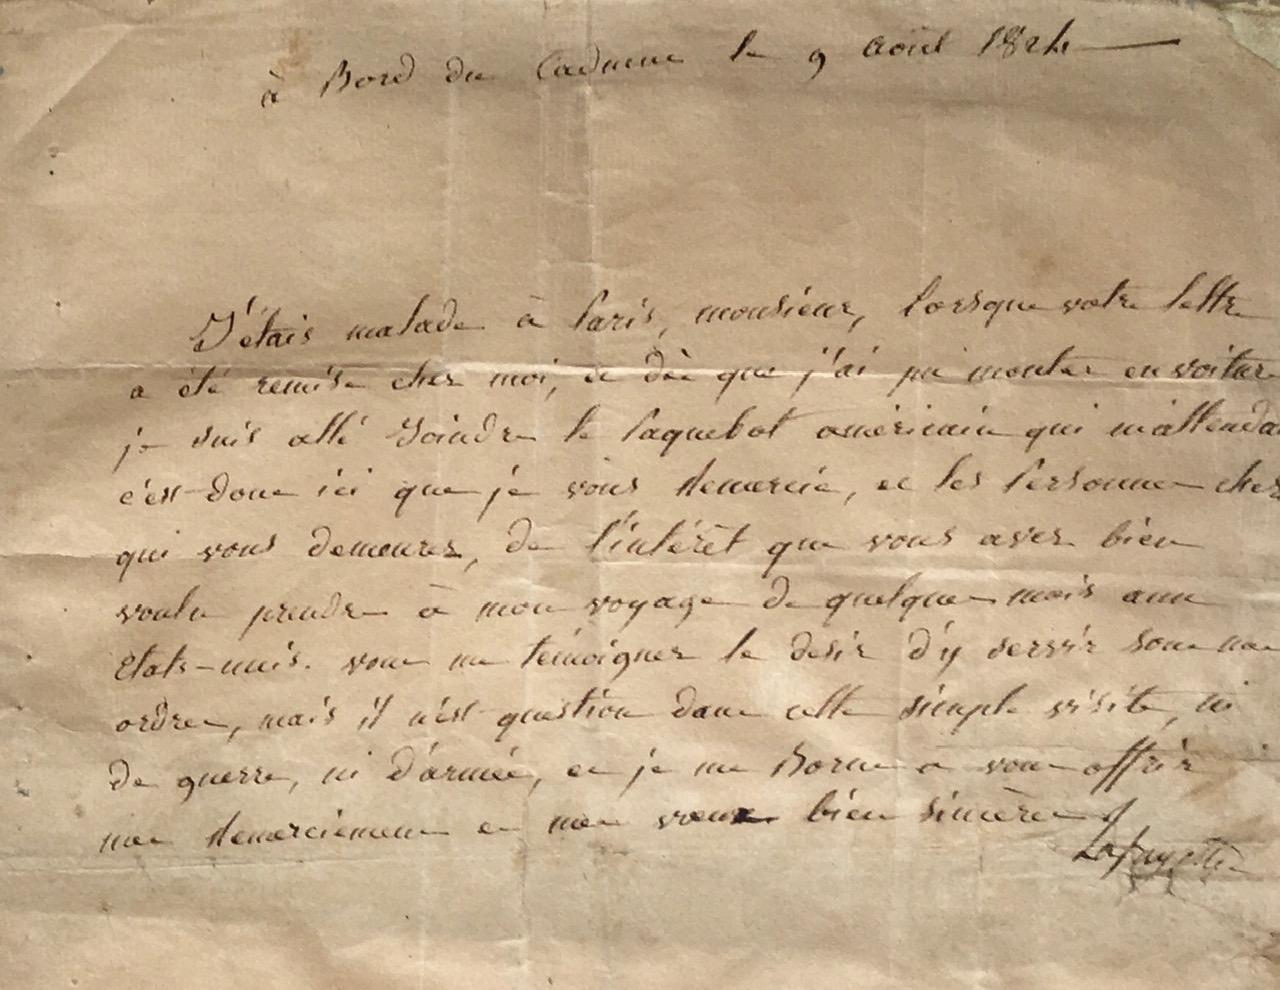 à Bord du Cadmus le 9 Août 1824
J'étais malade à Paris, monsieur, lorsque votre lettre
a été remise chez moi, et dès que j'ai pu monter en voiture
je suis allé Joindre le Paquebot américain qui m'attenda
c'est donc ici que je vous Remercie, et les Personnes chez
qui vous demeurez, de l'intérêt que vous avez bien
voulu prendre à mon voyage de quelques mois aux
Etats-unis. vous me témoignez le desir d'y servir sous mes
ordres, mais il n'est question dans cette simple visite, ni
de guerre, ni d'armée, et je me Borne a vous offrir
mes Remerciemens et mes vœux bien sincères
Lafayette